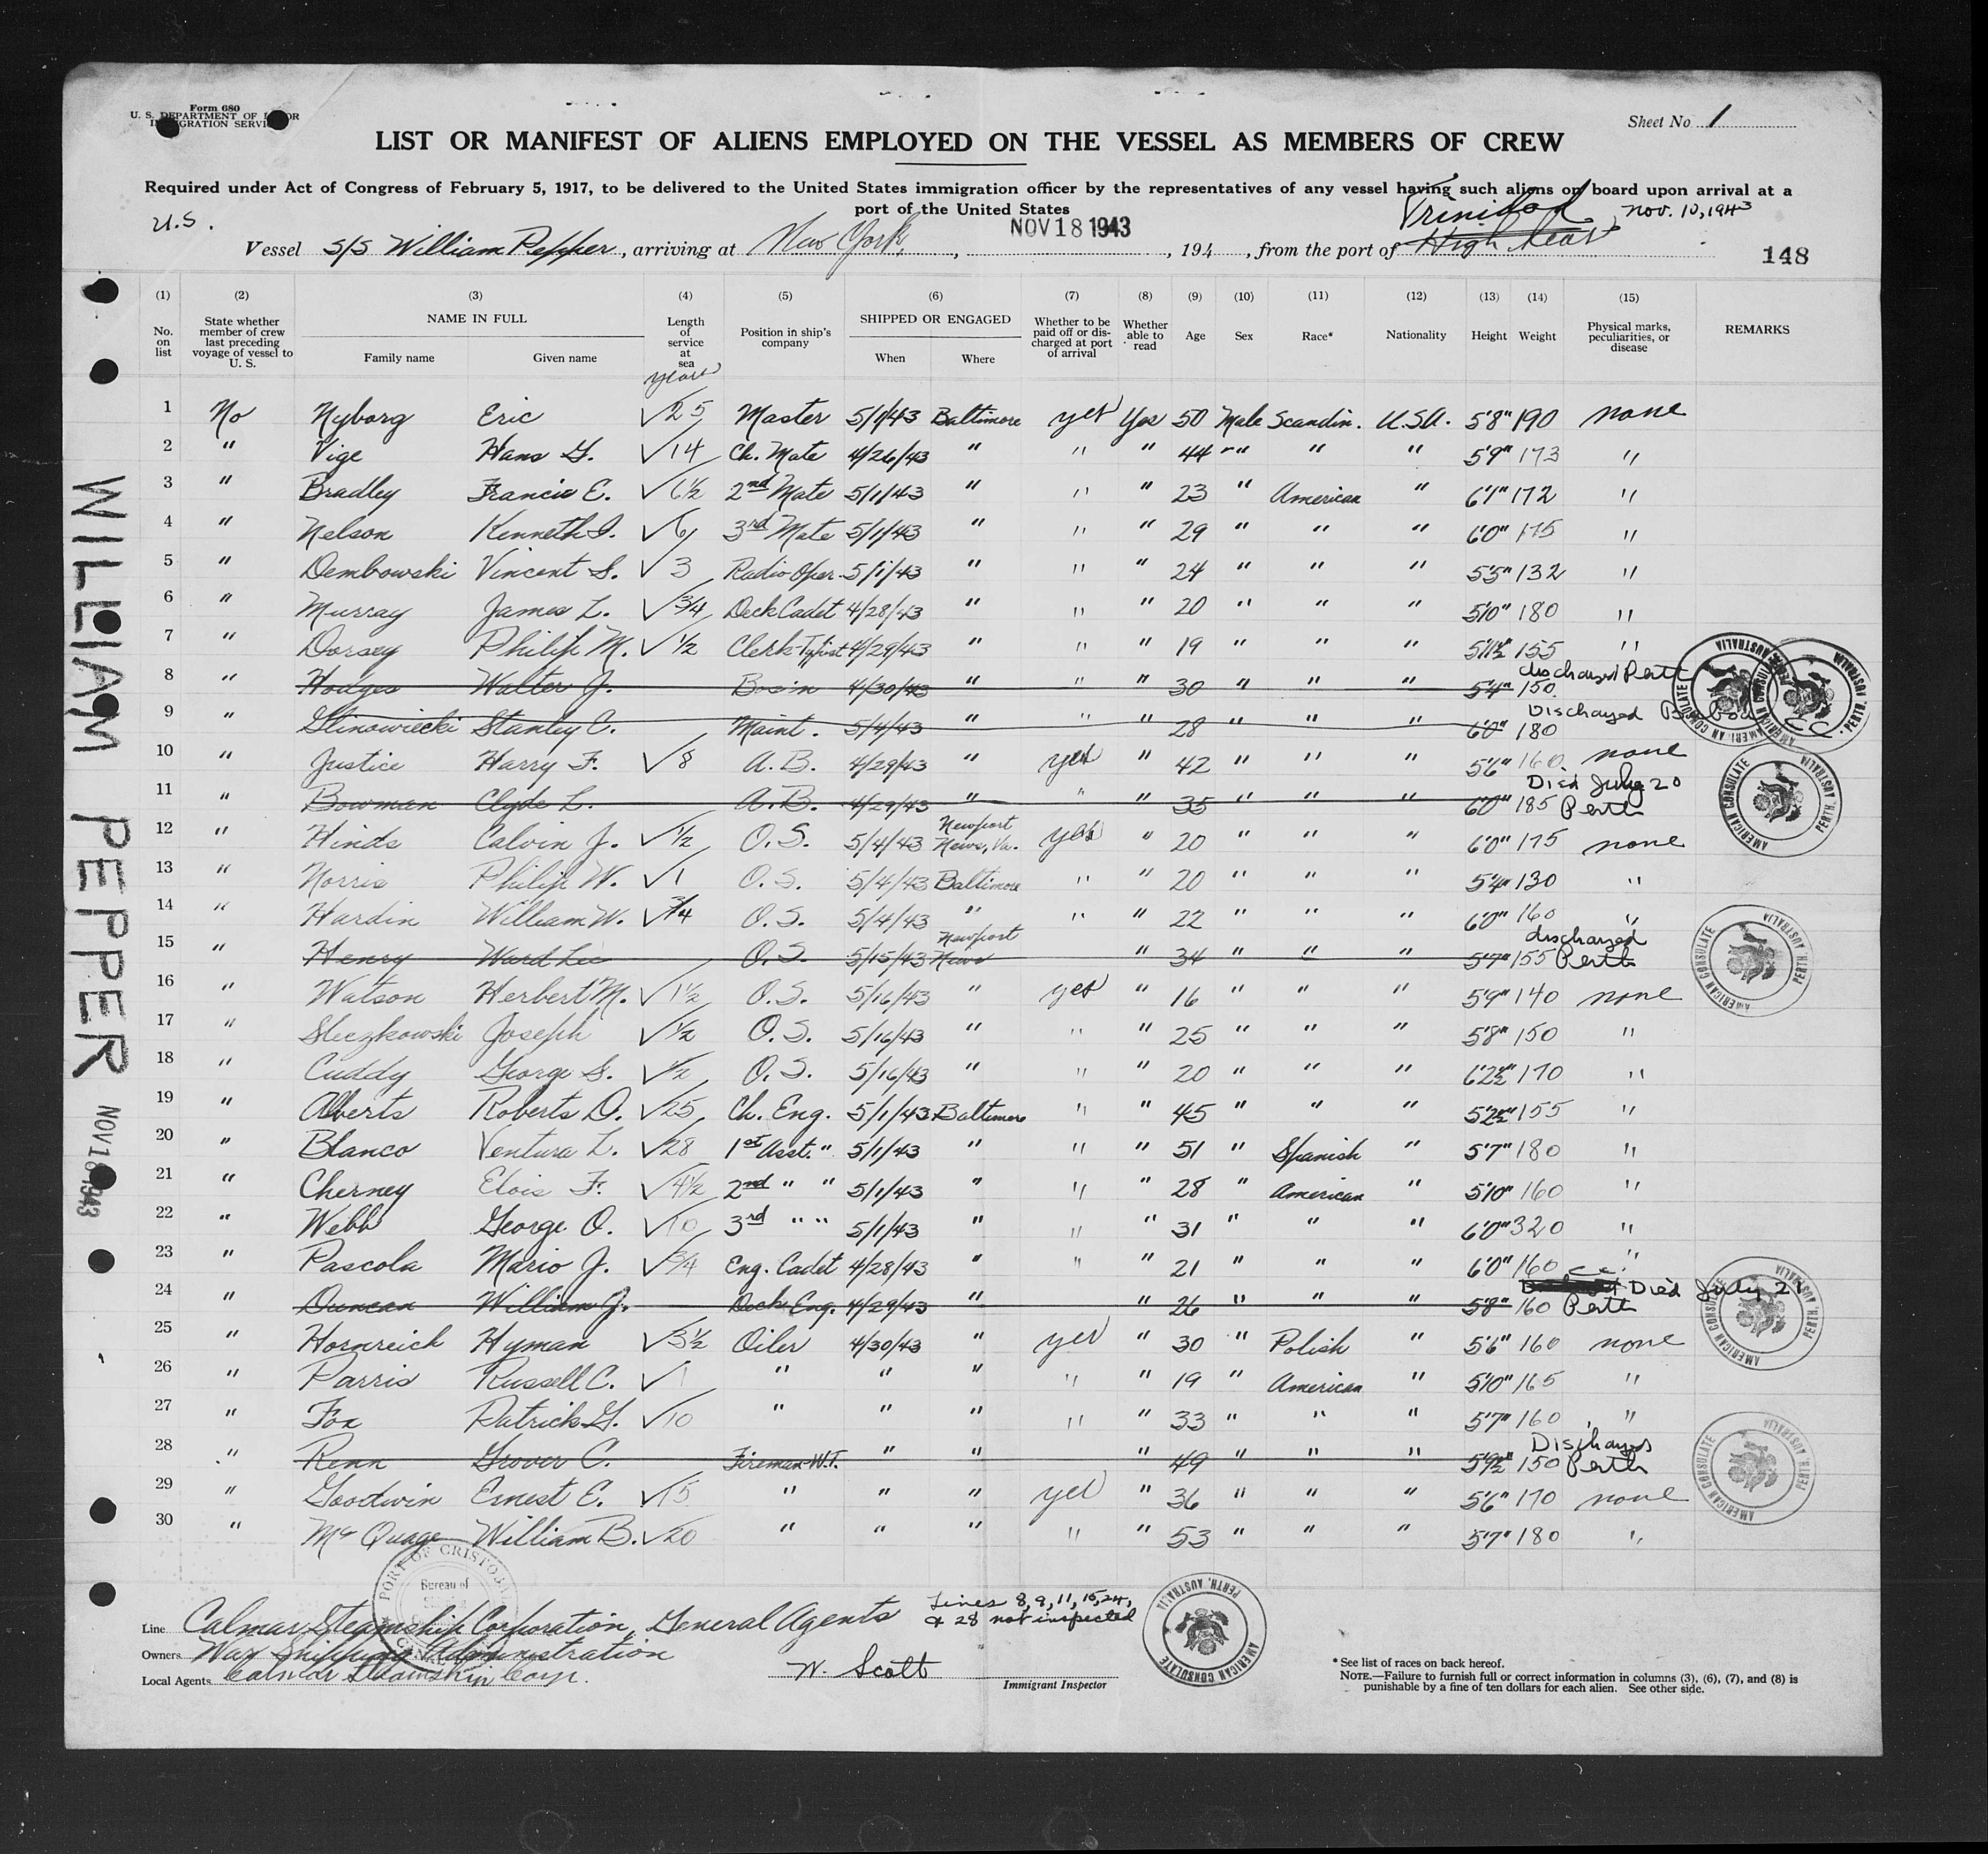 Form 680
U. S. DEPARTMENT OF LABOR
IMMIGRATION SERVICE
Sheet No. 1
LIST OR MANIFEST OF ALIENS EMPLOYED ON THE VESSEL AS MEMBERS OF CREW
Required under Act of Congress of February 5, 1917, to be delivered to the United States immigration officer by the representatives of any vessel having such aliens on board upon arrival at a
port of the United States
U.S.
Trinidad Nov. 10, 1943
Vessel S/S William Pepper, arriving at New York, NOV 18 1943, 194 , from the port of High Seas
148
(1) (2) (3) (4) (5) (6) (7) (8) (9) (10) (11) (12) (13) (14) (15)
No. on list
State whether member of crew last preceding voyage of vessel to U. S.
NAME IN FULL
Family name Given name
Length of service at sea
years
Position in ship's company
SHIPPED OR ENGAGED
When Where
Whether to be paid off or discharged at port of arrival
Whether able to read
Age Sex Race* Nationality Height Weight
Physical marks, peculiarities, or disease
REMARKS
1 No Nyborg Eric √25 Master 5/1/43 Baltimore yes Yes 50 Male Scandin. U.S.A. 5'8" 190 none
2 " Vige Hans G. √14 Ch. Mate 4/26/43 " " " 44 " " " 5'9" 173 "
3 " Bradley Francis E. √6½ 2nd Mate 5/1/43 " " " 23 " American " 6'1" 172 "
4 " Nelson Kenneth I. √6 3rd Mate 5/1/43 " " " 29 " " " 6'0" 175 "
5 " Dembowski Vincent S. √3 Radio Oper. 5/1/43 " " " 24 " " " 5'5" 132 "
6 " Murray James L. √3/4 Deck Cadet 4/28/43 " " " 20 " " " 5'10" 180 "
7 " Dorsey Philip M. √½ Clerk-Typist 4/29/43 " " " 19 " " " 5'11½" 155 "
8 " Hodges Walter J. Bosin 4/30/43 " " " 30 " " " 5'4" 150 discharged Perth
9 " Glinowiecki Stanley C. Maint. 5/4/43 " " " 28 " " " 6'0" 180 Discharged
10 " Justice Harry F. √8 A.B. 4/29/43 " yes " 42 " " " 5'6" 160 none
11 " Bowman Clyde L. A.B. 4/29/43 " " " 35 " " " 6'0" 185 Died July 20 Perth
12 " Hinds Calvin J. √½ O.S. 5/4/43 Newport News, Va. yes " 20 " " " 6'0" 175 none
13 " Norris Philip W. √1 O.S. 5/4/43 Baltimore " " 20 " " " 5'4" 130 "
14 " Hardin William W. √3/4 O.S. 5/4/43 " " " 22 " " " 6'0" 160 "
15 " Henry Ward Lee O.S. 5/15/43 Newport News " 34 " " " 5'7" 155 discharged Perth
16 " Watson Herbert M. √1½ O.S. 5/16/43 " yes " 16 " " " 5'9" 140 none
17 " Sleczkowski Joseph √½ O.S. 5/16/43 " " " 25 " " " 5'8" 150 "
18 " Cuddy George S. √½ O.S. 5/16/43 " " " 20 " " " 6'2½" 170 "
19 " Alberts Roberts D. √25 Ch. Eng. 5/1/43 Baltimore " " 45 " " " 5'2½" 155 "
20 " Blanco Ventura L. √28 1st Asst. " 5/1/43 " " " 51 " Spanish " 5'7" 180 "
21 " Cherney Elois F. √4½ 2nd " " 5/1/43 " " " 28 " American " 5'10" 160 "
22 " Webb George O. √10 3rd " " 5/1/43 " " " 31 " " " 6'0" 320 "
23 " Pascola Mario J. √3/4 Eng. Cadet 4/28/43 " " " 21 " " " 6'0" 160 "
24 " Duncan William J. Deck Eng. 4/29/43 " " 26 " " " 5'8" 160 Died July 21 Perth
25 " Hornreich Hyman √3½ Oiler 4/30/43 " yes " 30 " Polish " 5'6" 160 none
26 " Parris Russell C. √1 " " " " " 19 " American " 5'10" 165 "
27 " Fox Patrick G. √10 " " " " " 33 " " " 5'7" 160 "
28 " Renn Grover C. Fireman-W.T. " " " 49 " " " 5'9½" 150 Discharged Perth
29 " Goodwin Ernest E. √15 " " " yes " 36 " " " 5'6" 170 none
30 " McQuage William B. √20 " " " " " 53 " " " 5'7" 180 "
WILLIAM PEPPER NOV 18 1943
AMERICAN CONSULATE PERTH, AUSTRALIA
AMERICAN CONSULATE PERTH, AUSTRALIA
AMERICAN CONSULATE PERTH, AUSTRALIA
AMERICAN CONSULATE PERTH, AUSTRALIA
AMERICAN CONSULATE PERTH, AUSTRALIA
AMERICAN CONSULATE PERTH, AUSTRALIA
AMERICAN CONSULATE PERTH, AUSTRALIA
PORT OF CRISTOBAL
Bureau of
Line Calmar Steamship Corporation, General Agents
Owners War Shipping Administration
Local Agents Calmar Steamship Corp.
Lines 8, 9, 11, 15, 24,
& 28 not inspected
W. Scott
Immigrant Inspector
* See list of races on back hereof.
NOTE.—Failure to furnish full or correct information in columns (3), (6), (7), and (8) is
punishable by a fine of ten dollars for each alien. See other side.